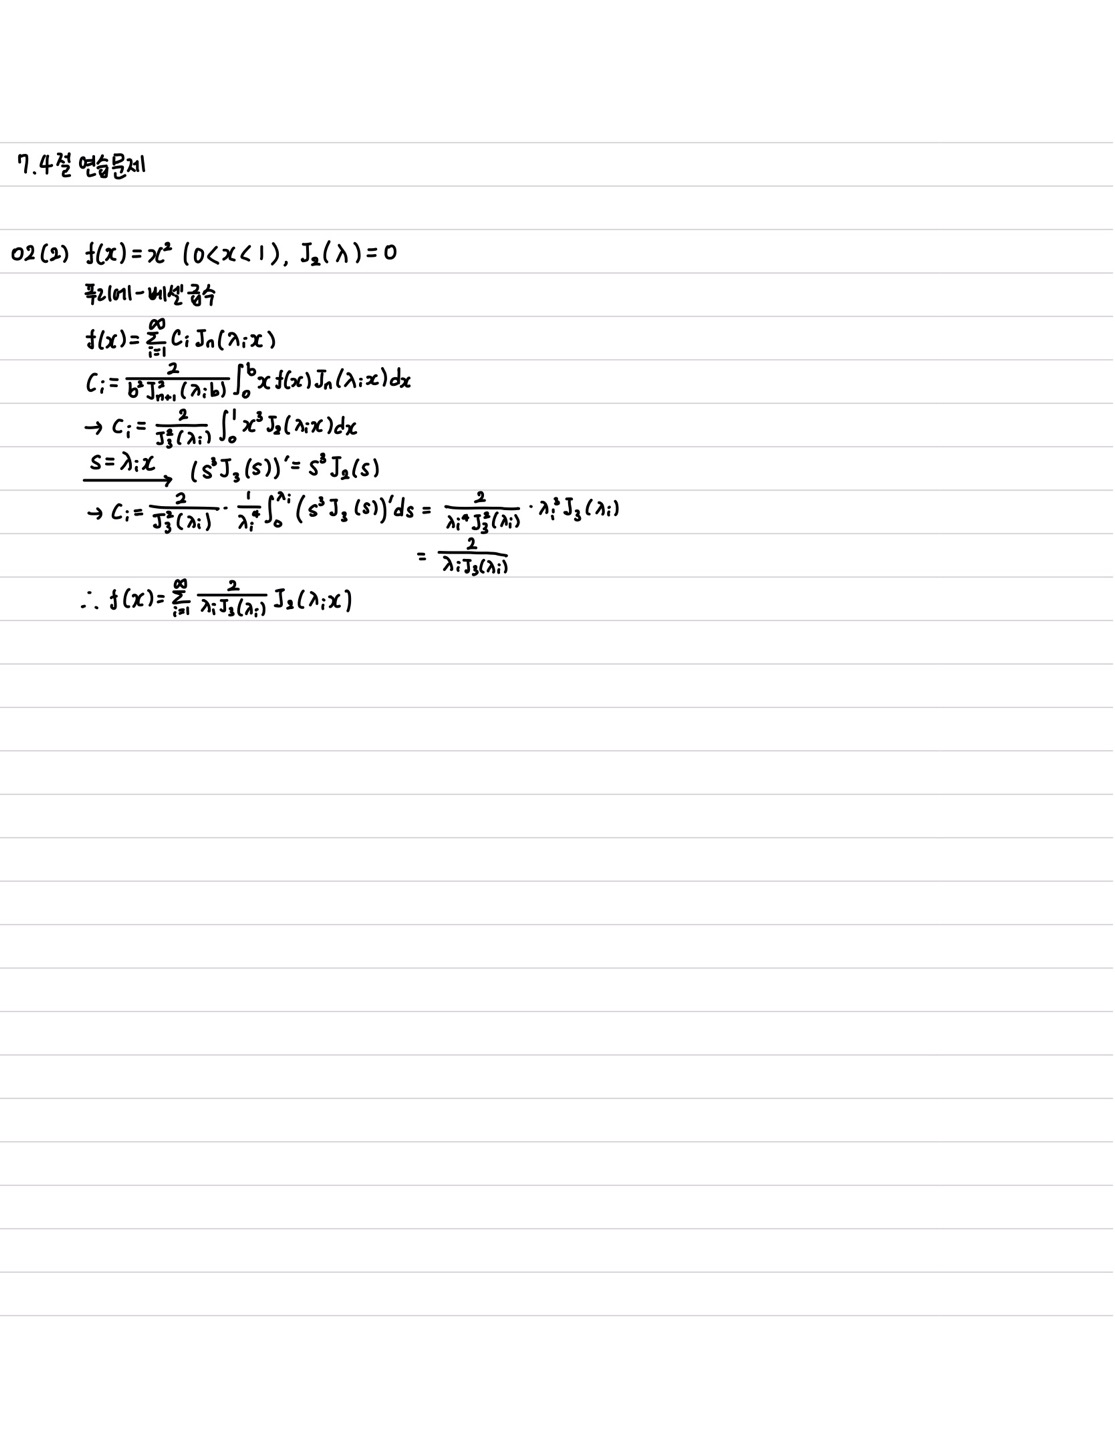 7.4절 연습문제
02(2) f(x)=x² (0<x<1), J₂(λ)=0
푸리에-베셀 급수
f(x)=∑_{i=1}^{∞} C_i J_n(λ_i x)
C_i = \frac{2}{b² J²_{n+1}(λ_i b)} ∫_0^b x f(x) J_n(λ_i x) dx
→ C_i = \frac{2}{J_3²(λ_i)} ∫_0^1 x³ J₂(λ_i x) dx
s=λ_i x ⟶ (s³ J₃(s))′ = s³ J₂(s)
→ C_i = \frac{2}{J_3²(λ_i)} · \frac{1}{λ_i⁴} ∫_0^{λ_i} (s³ J₃(s))′ ds = \frac{2}{λ_i⁴ J_3²(λ_i)} · λ_i³ J₃(λ_i)
= \frac{2}{λ_i J₃(λ_i)}
∴ f(x)=∑_{i=1}^{∞} \frac{2}{λ_i J₃(λ_i)} J₂(λ_i x)